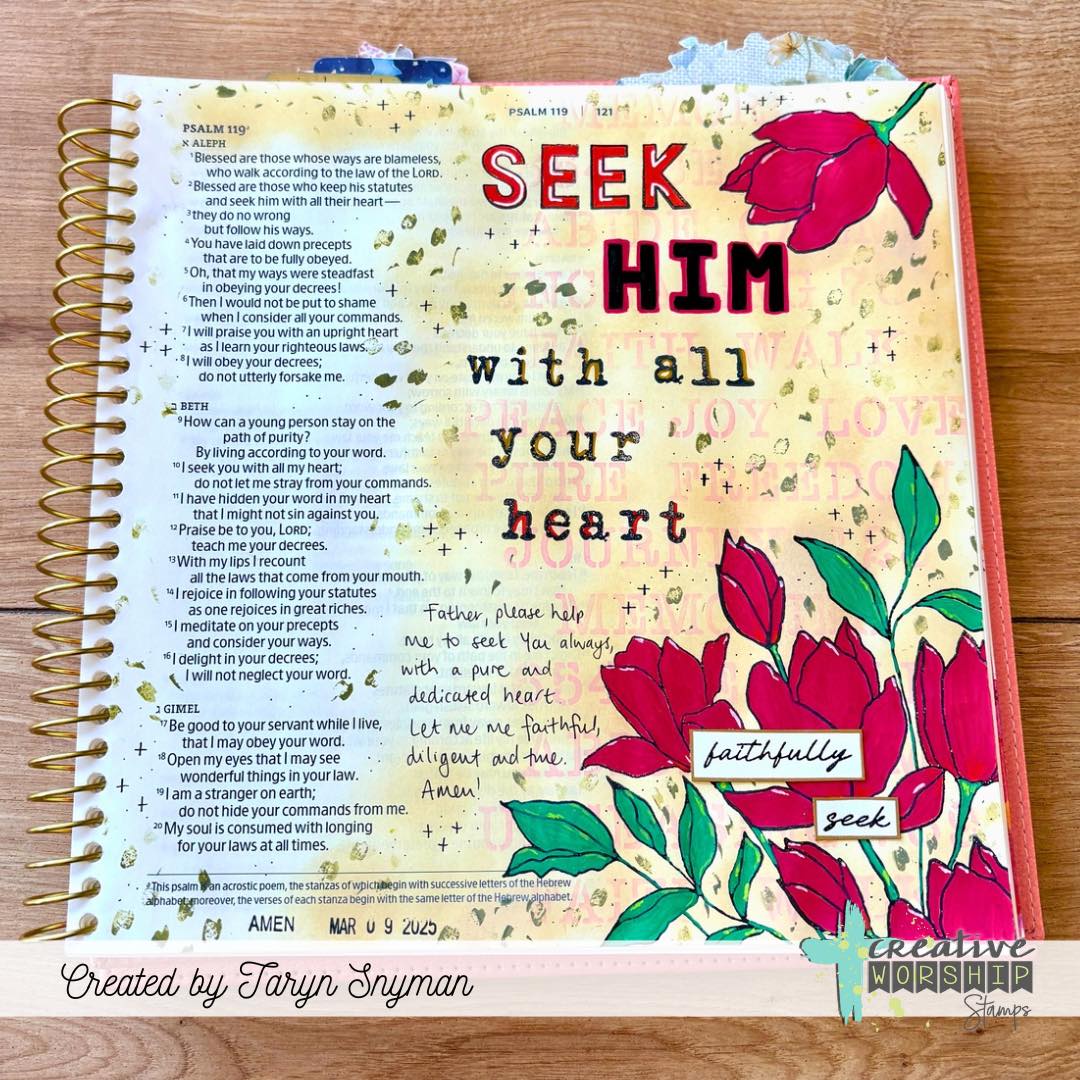 PSALM 119 | 121
PSALM 119ª
א ALEPH
¹Blessed are those whose ways are blameless,
who walk according to the law of the LORD.
²Blessed are those who keep his statutes
and seek him with all their heart—
³they do no wrong
but follow his ways.
⁴You have laid down precepts
that are to be fully obeyed.
⁵Oh, that my ways were steadfast
in obeying your decrees!
⁶Then I would not be put to shame
when I consider all your commands.
⁷I will praise you with an upright heart
as I learn your righteous laws.
⁸I will obey your decrees;
do not utterly forsake me.
ב BETH
⁹How can a young person stay on the
path of purity?
By living according to your word.
¹⁰I seek you with all my heart;
do not let me stray from your commands.
¹¹I have hidden your word in my heart
that I might not sin against you.
¹²Praise be to you, LORD;
teach me your decrees.
¹³With my lips I recount
all the laws that come from your mouth.
¹⁴I rejoice in following your statutes
as one rejoices in great riches.
¹⁵I meditate on your precepts
and consider your ways.
¹⁶I delight in your decrees;
I will not neglect your word.
ג GIMEL
¹⁷Be good to your servant while I live,
that I may obey your word.
¹⁸Open my eyes that I may see
wonderful things in your law.
¹⁹I am a stranger on earth;
do not hide your commands from me.
²⁰My soul is consumed with longing
for your laws at all times.
ªThis psalm is an acrostic poem, the stanzas of which begin with successive letters of the Hebrew
alphabet; moreover, the verses of each stanza begin with the same letter of the Hebrew alphabet.
AMEN MAR 09 2025
SEEK
HIM
with all
your
heart
FAITH WALK
PEACE JOY LOVE
PURE FREEDOM
Father, please help
me to seek You always,
with a pure and
dedicated heart
Let me me faithful,
diligent and true.
Amen!
faithfully
seek
Created by Taryn Snyman
creative
WORSHIP
Stamps